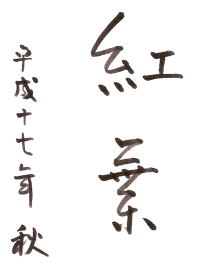 紅葉
平成十七年秋